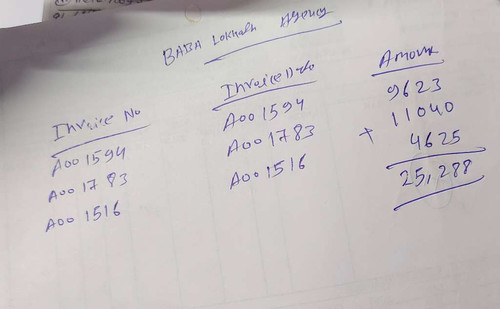 BABA Loknath Agency
Invoice No Invoice Date Amount
A001594 A001594 9623
A001783 A001783 11040
A001516 A001516 + 4625
25,288